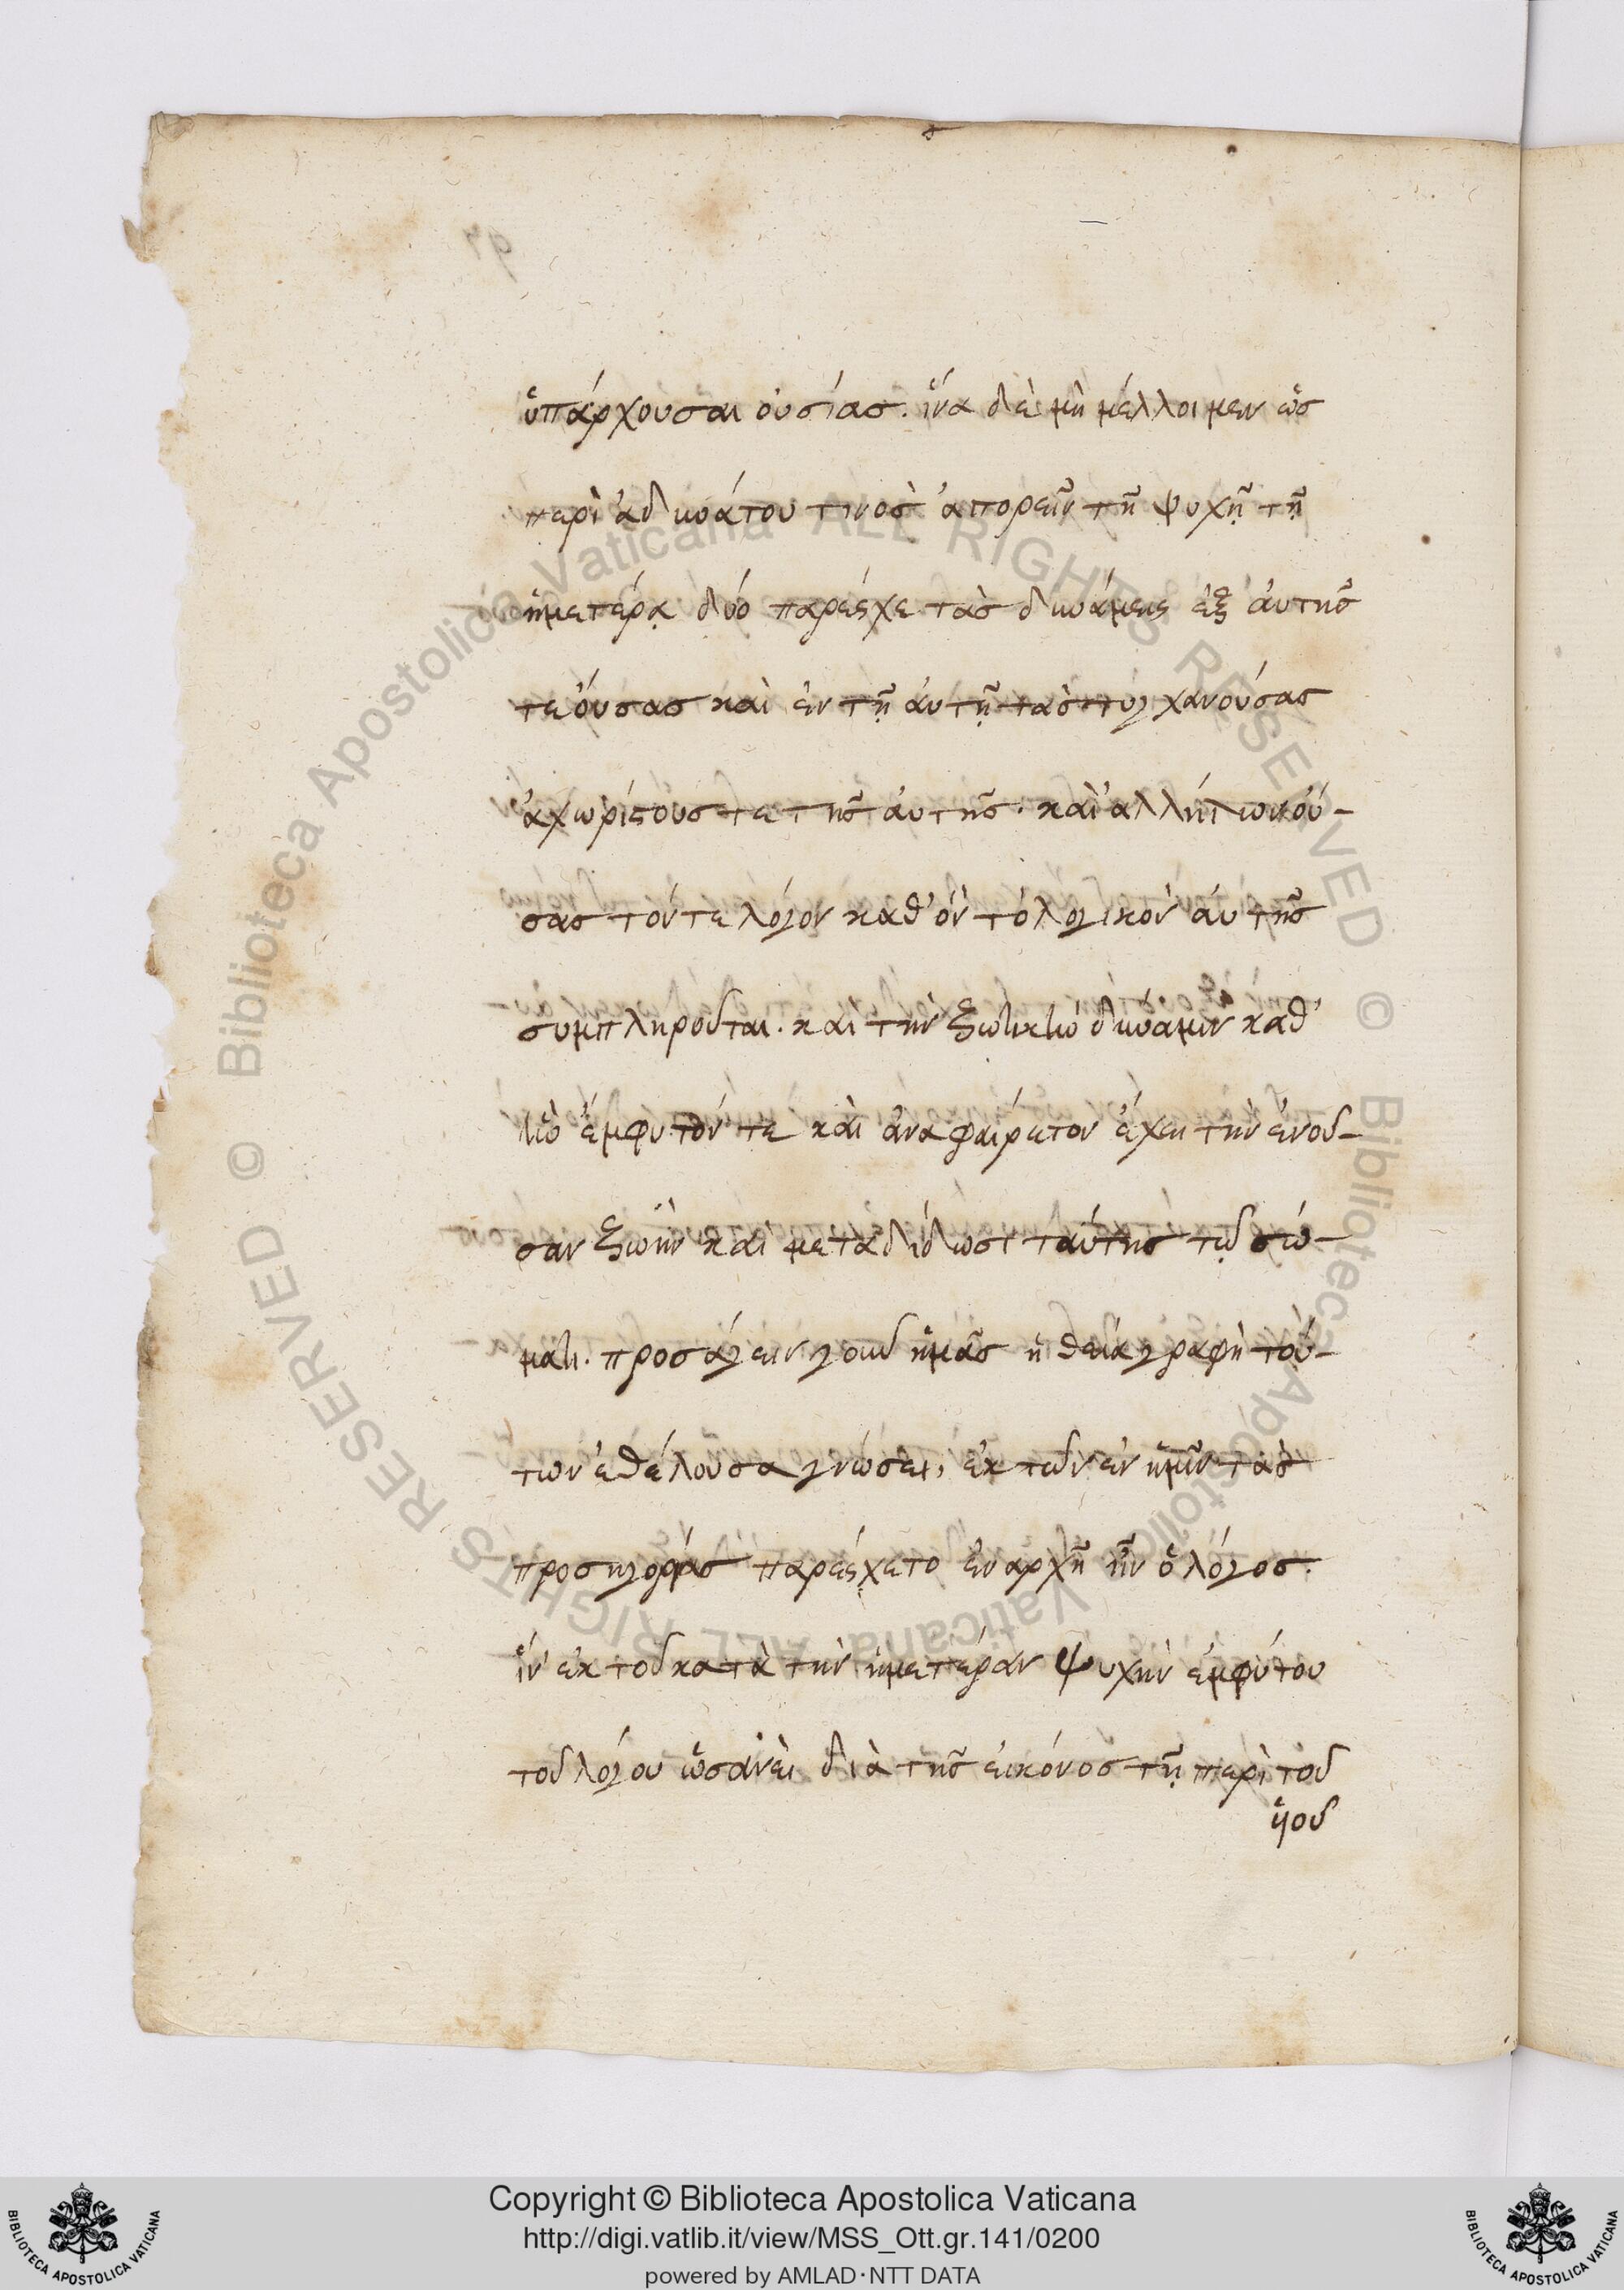 ὑπάρχουσαι οὐσίας. ἵνα δὲ μὴ μέλλοιμεν ὡς
περὶ ἀδυνάτου τινὸς ἀπορεῖν τῇ ψυχῇ τῇ
ἡμετέρᾳ δύο παρέσχε τὰς δυνάμεις ἐξ αὐτῆς
τε οὔσας καὶ ἐν τῇ αὐτῇ τὰς τυγχανούσας
ἀχωρίστους τε τῆς αὐτῆς. καὶ ἀλλήλων οὔ-
σας τόν τε λόγον καθ' ὃν τὸ λογικὸν αὐτῆς
συμπληροῦται. καὶ τὴν ζωτικὴν δύναμιν καθ'
ἣν ἔμφυτόν τε καὶ ἀναφαίρετον ἔχει τὴν ἐνοῦ-
σαν ζωὴν καὶ μεταδίδωσι ταύτης τῷ σώ-
ματι. προσάγειν γοῦν ἡμᾶς ἡ θεία γραφὴ τού-
των ἐθέλουσα γνώσει, ἐκ τῶν ἐν ἡμῖν τὰς
προσηγορίας παρέσχετο ἐν ἀρχῇ ἦν ὁ λόγος.
ἵν' ἐκ τοῦ κατὰ τὴν ἡμετέραν ψυχὴν ἐμφύτου
τοῦ λόγου ὡσανεὶ διὰ τῆς εἰκόνος τῇ περὶ τοῦ
ὑοῦ
Copyright © Biblioteca Apostolica Vaticana
http://digi.vatlib.it/view/MSS_Ott.gr.141/0200
powered by AMLAD·NTT DATA
BIBLIOTECA APOSTOLICA VATICANA
BIBLIOTECA APOSTOLICA VATICANA
© Biblioteca Apostolica Vaticana ALL RIGHTS RESERVED
© Biblioteca Apostolica Vaticana ALL RIGHTS RESERVED